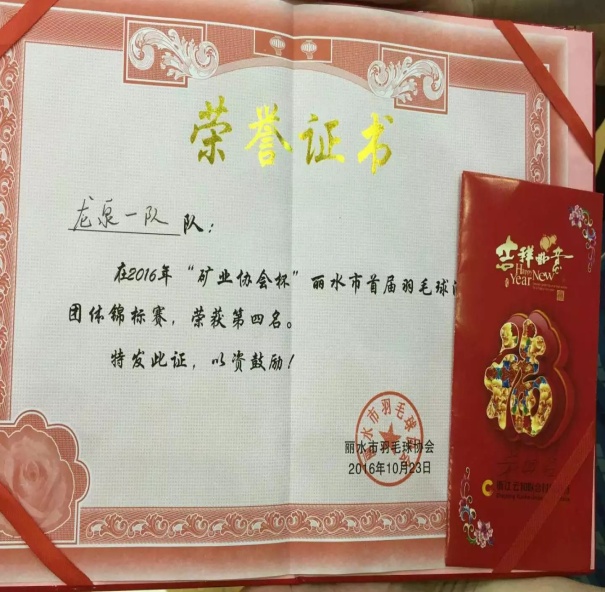 荣誉证书
龙泉一队 队：
在2016年“矿业协会杯”丽水市首届羽毛球
团体锦标赛，荣获第四名。
特发此证，以资鼓励！
丽水市羽毛球协会
2016年10月23日
丽水市羽毛球
吉祥如意
Happy
New
Year
福